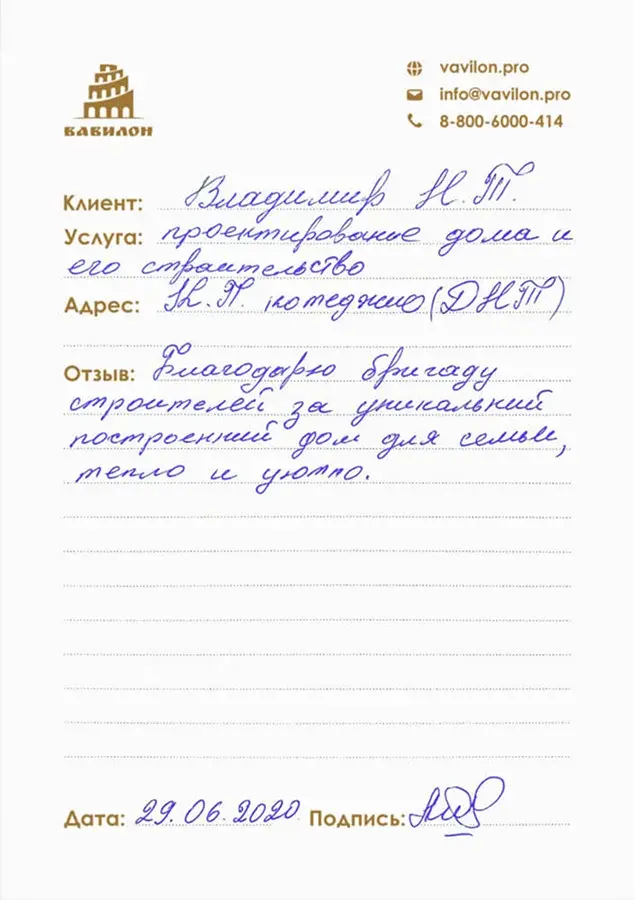 ВАВИЛОН
vavilon.pro
info@vavilon.pro
8-800-6000-414
Клиент: Владимир Н.Т.
Услуга: проектирование дома и
его строительство
Адрес: К.П. (ДНТ)
Отзыв: Благодарю бригаду
строителей за уникальний
построенний дом для семьи,
тепло и уютно.
Дата: 29.06.2020 Подпись: